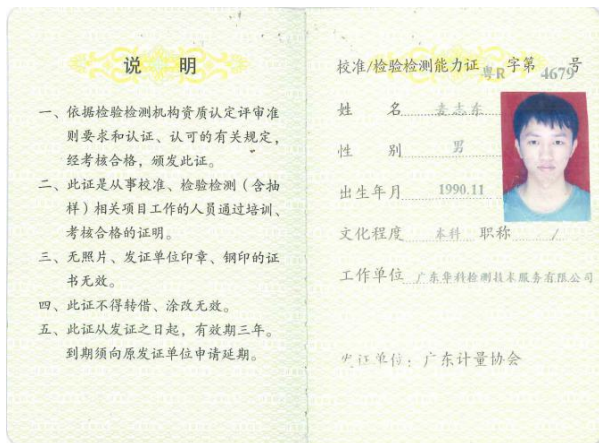 说 明
一、依据检验检测机构资质认定评审准
则要求和认证、认可的有关规定，
经考核合格，颁发此证。
二、此证是从事校准、检验检测（含抽
样）相关项目工作的人员通过培训、
考核合格的证明。
三、无照片、发证单位印章、钢印的证
书无效。
四、此证不得转借、涂改无效。
五、此证从发证之日起，有效期三年。
到期须向原发证单位申请延期。
校准/检验检测能力证 粤R 字第 4679 号
姓 名 麦志东
性 别 男
出生年月 1990.11
文化程度 本科 职称 /
工作单位 广东华科检测技术服务有限公司
发证单位：广东计量协会